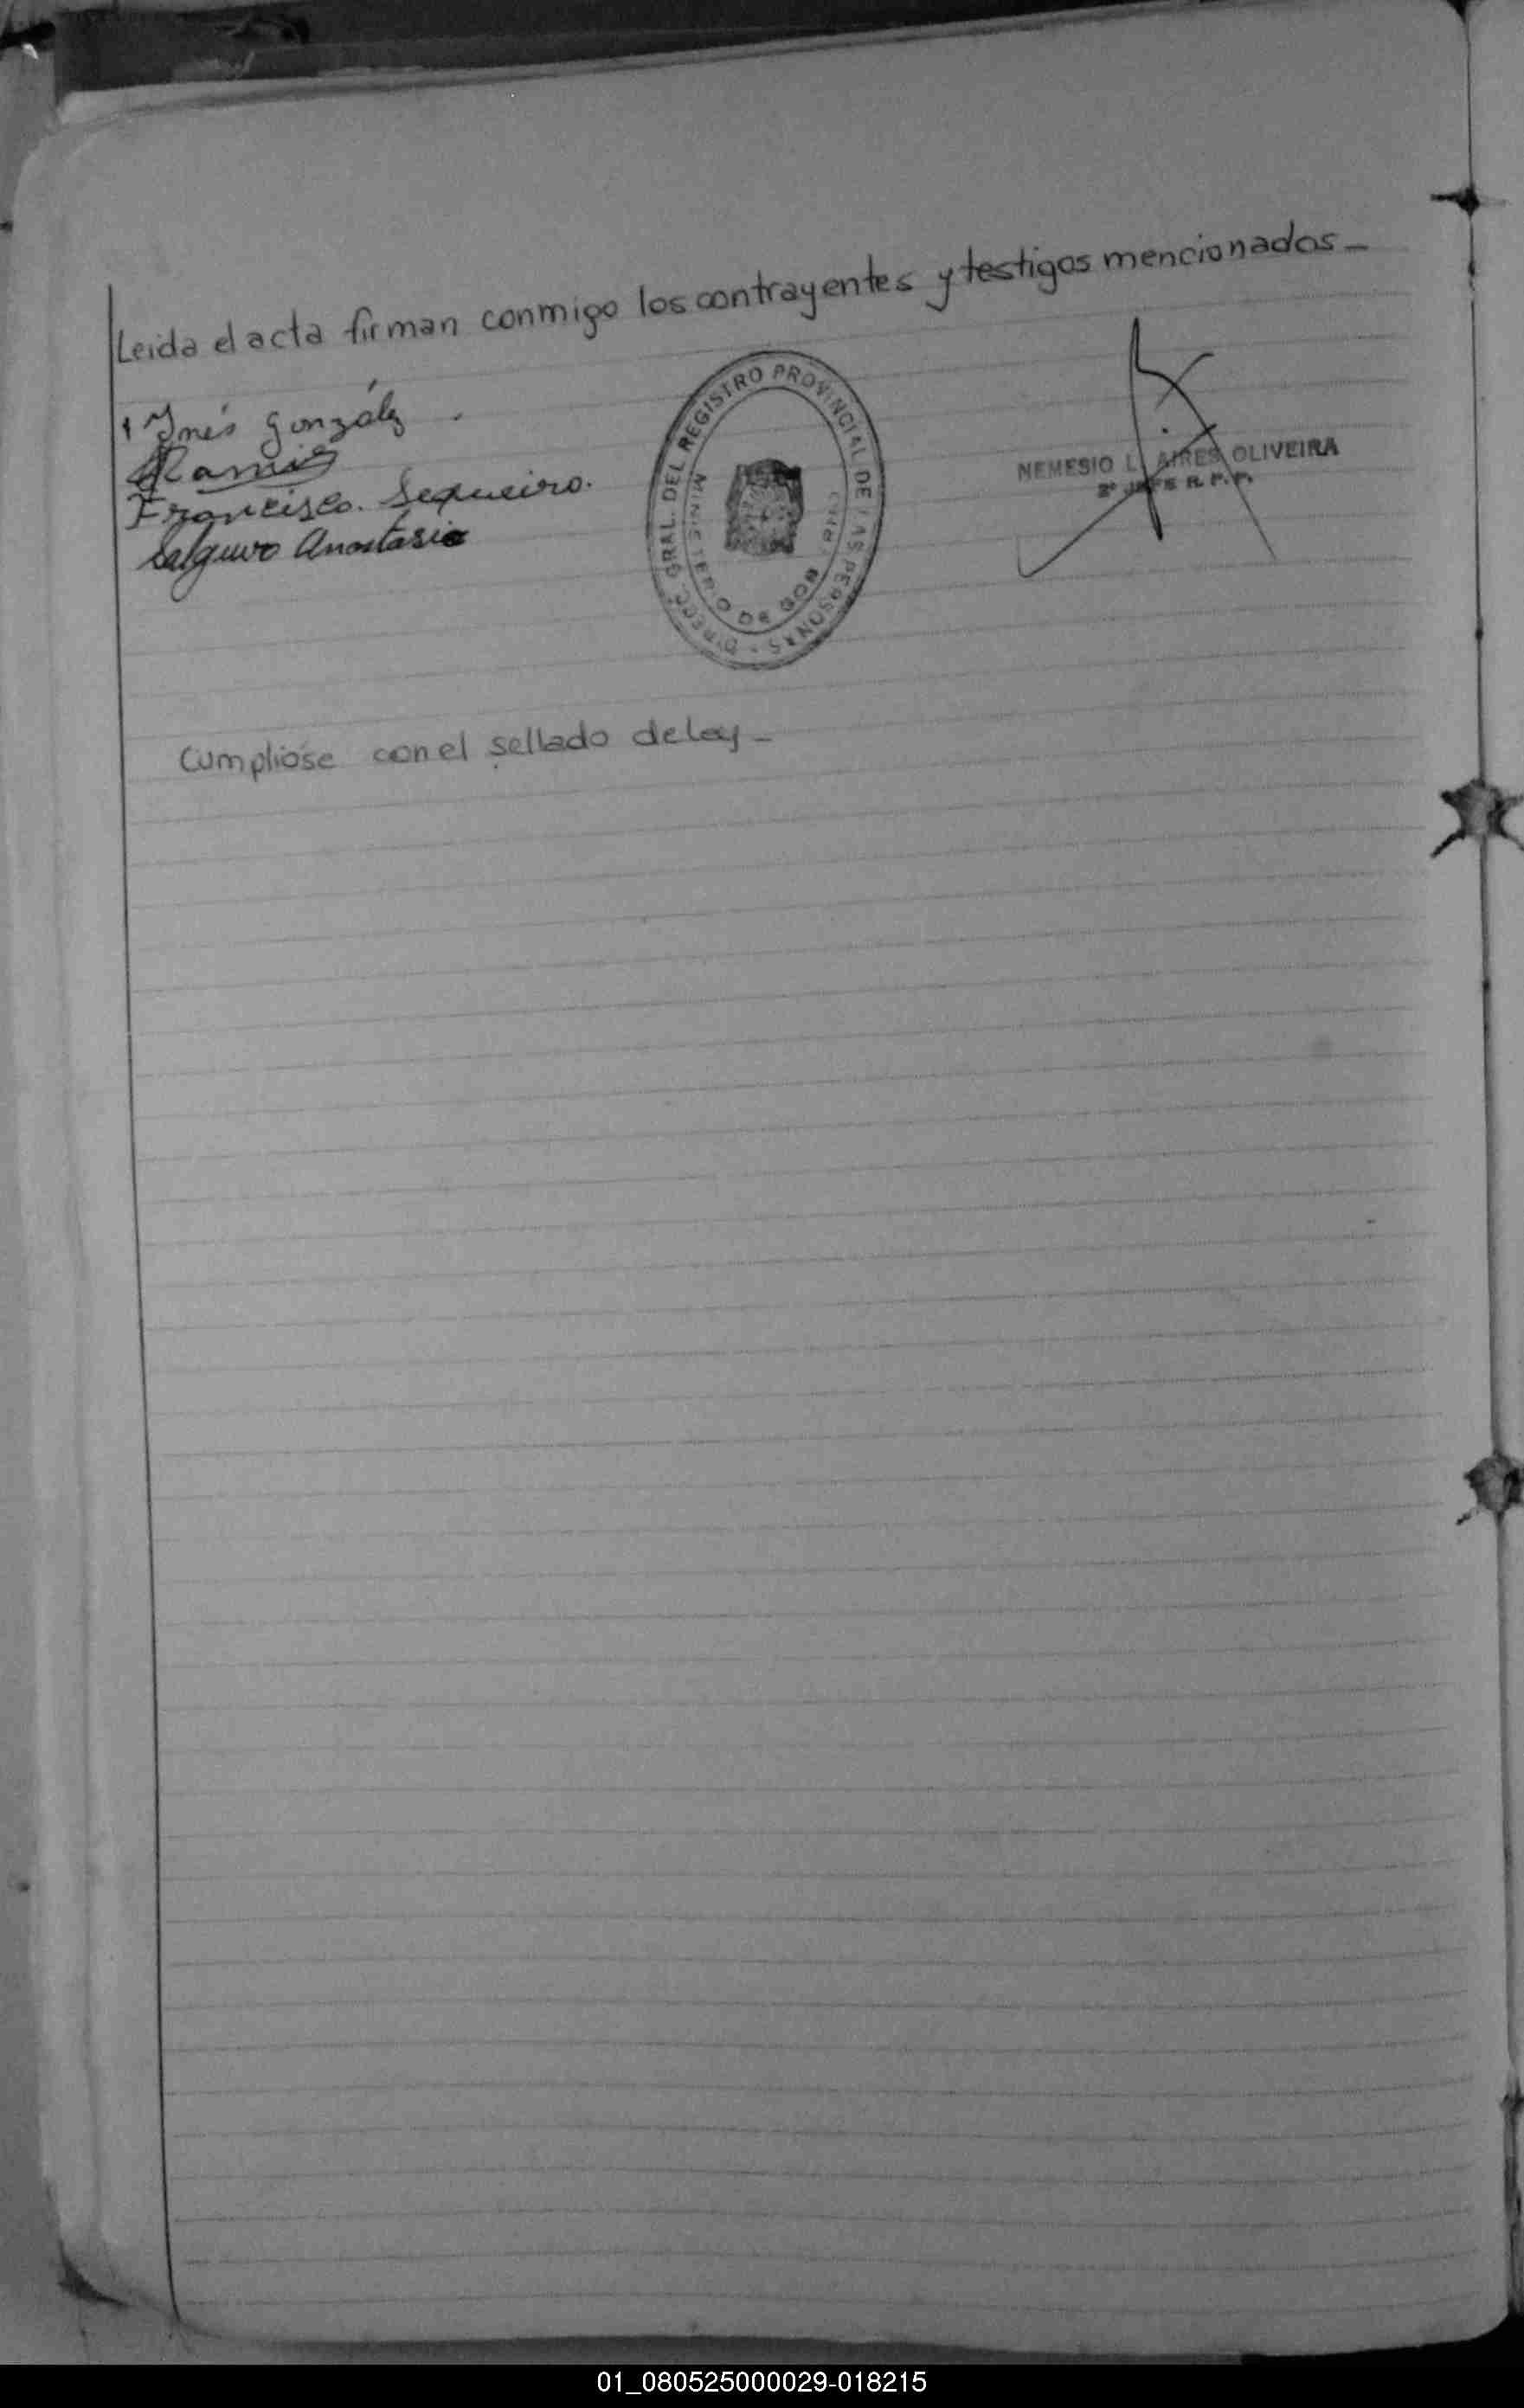 Leida el acta firman conmigo los contrayentes y testigos mencionados_
Inés González.
Ramis
Francisco. Sequeiro.
Salguero Anastasio
DIRECC. GRAL. DEL REGISTRO PROVINCIAL DE LAS PERSONAS
MINISTERIO DE GOB
NEMESIO L. AIRES OLIVEIRA
2º JEFE R. P. P.
Cumplióse con el sellado de ley_
01_080525000029-018215